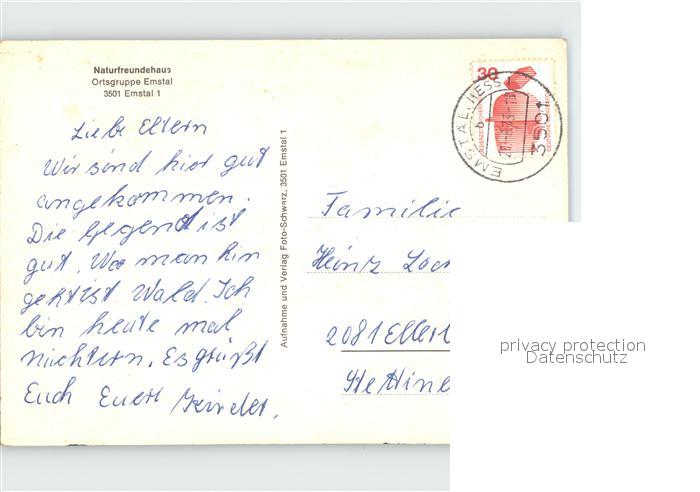 Naturfreundehaus
Ortsgruppe Emstal
3501 Emstal 1
Liebe Eltern
Wir sind hier gut
angekommen.
Die Gegend ist
gut. Wo man hin
geht ist Wald. Ich
bin heute mal
nüchtern. Es grüßt
Euch Eure Kinder.
Aufnahme und Verlag Foto-Schwarz, 3501 Emstal 1
30
EMSTAL, HESS
b
3501
Familie
Heinz
2081 Ellerb
Stettine
privacy protection
Datenschutz